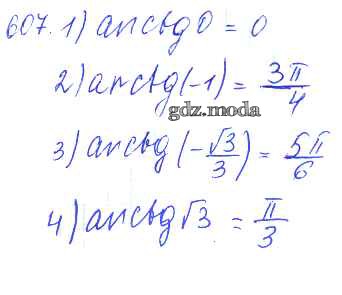 607. 1) arctg 0 = 0
2) arctg (-1) = 3π/4
gdz.moda
3) arctg (-√3/3) = 5π/6
4) arctg √3 = π/3